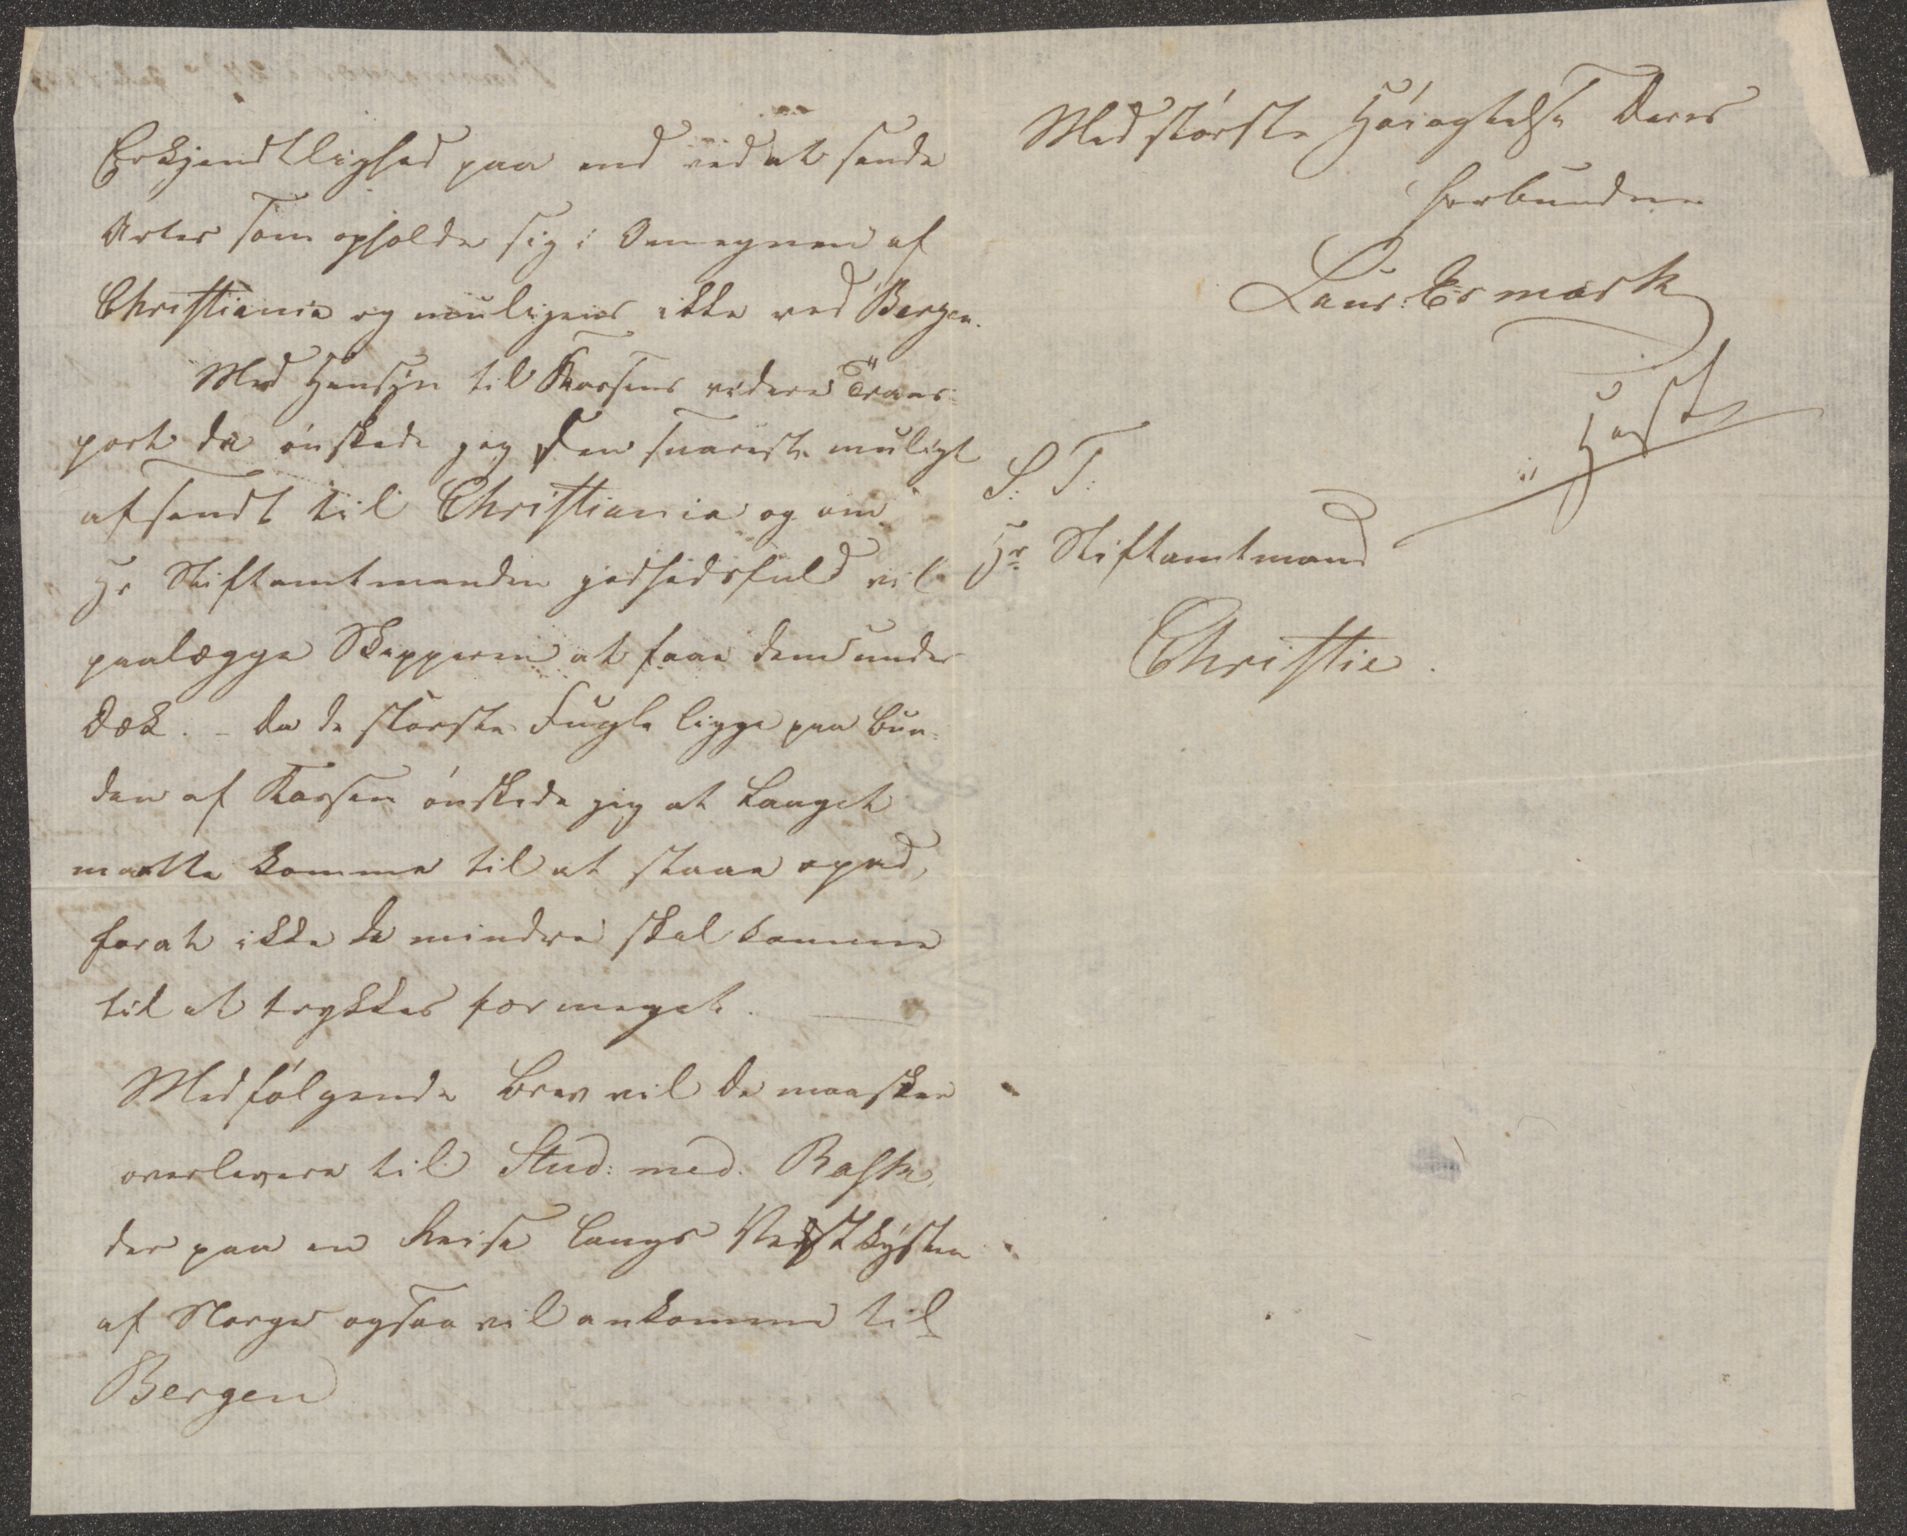 Erkjendtlighed paa end ved at sende
Arter som opholde sig i Omegnen af
Christiania og muligens ikke ved Bergen.
Med Hensyn til Kassens videre Trans-
port da ønskede jeg den snarest muligt
afsendt til Christiania og om
Hr Stiftamtmanden godhedsfuld vil
paalægge Skipperen at faae dem under
Dæk. – Da de største Fugle ligge paa Bun-
den af Kassen ønskede jeg at Laaget
maatte komme til at staae opad,
forat ikke de mindre skal komme
til at trykkes for meget.
Medfølgende Brev vil De maaskee
overlevere til Stud: med.
der paa en Reise langs Vestkysten
af Norge ogsaa vil ankomme til
Bergen
Med største Høiagtelse Deres
forbundne
Laur: Esmark
i Hast
S: T:
Hr Stiftamtmand
Christie.